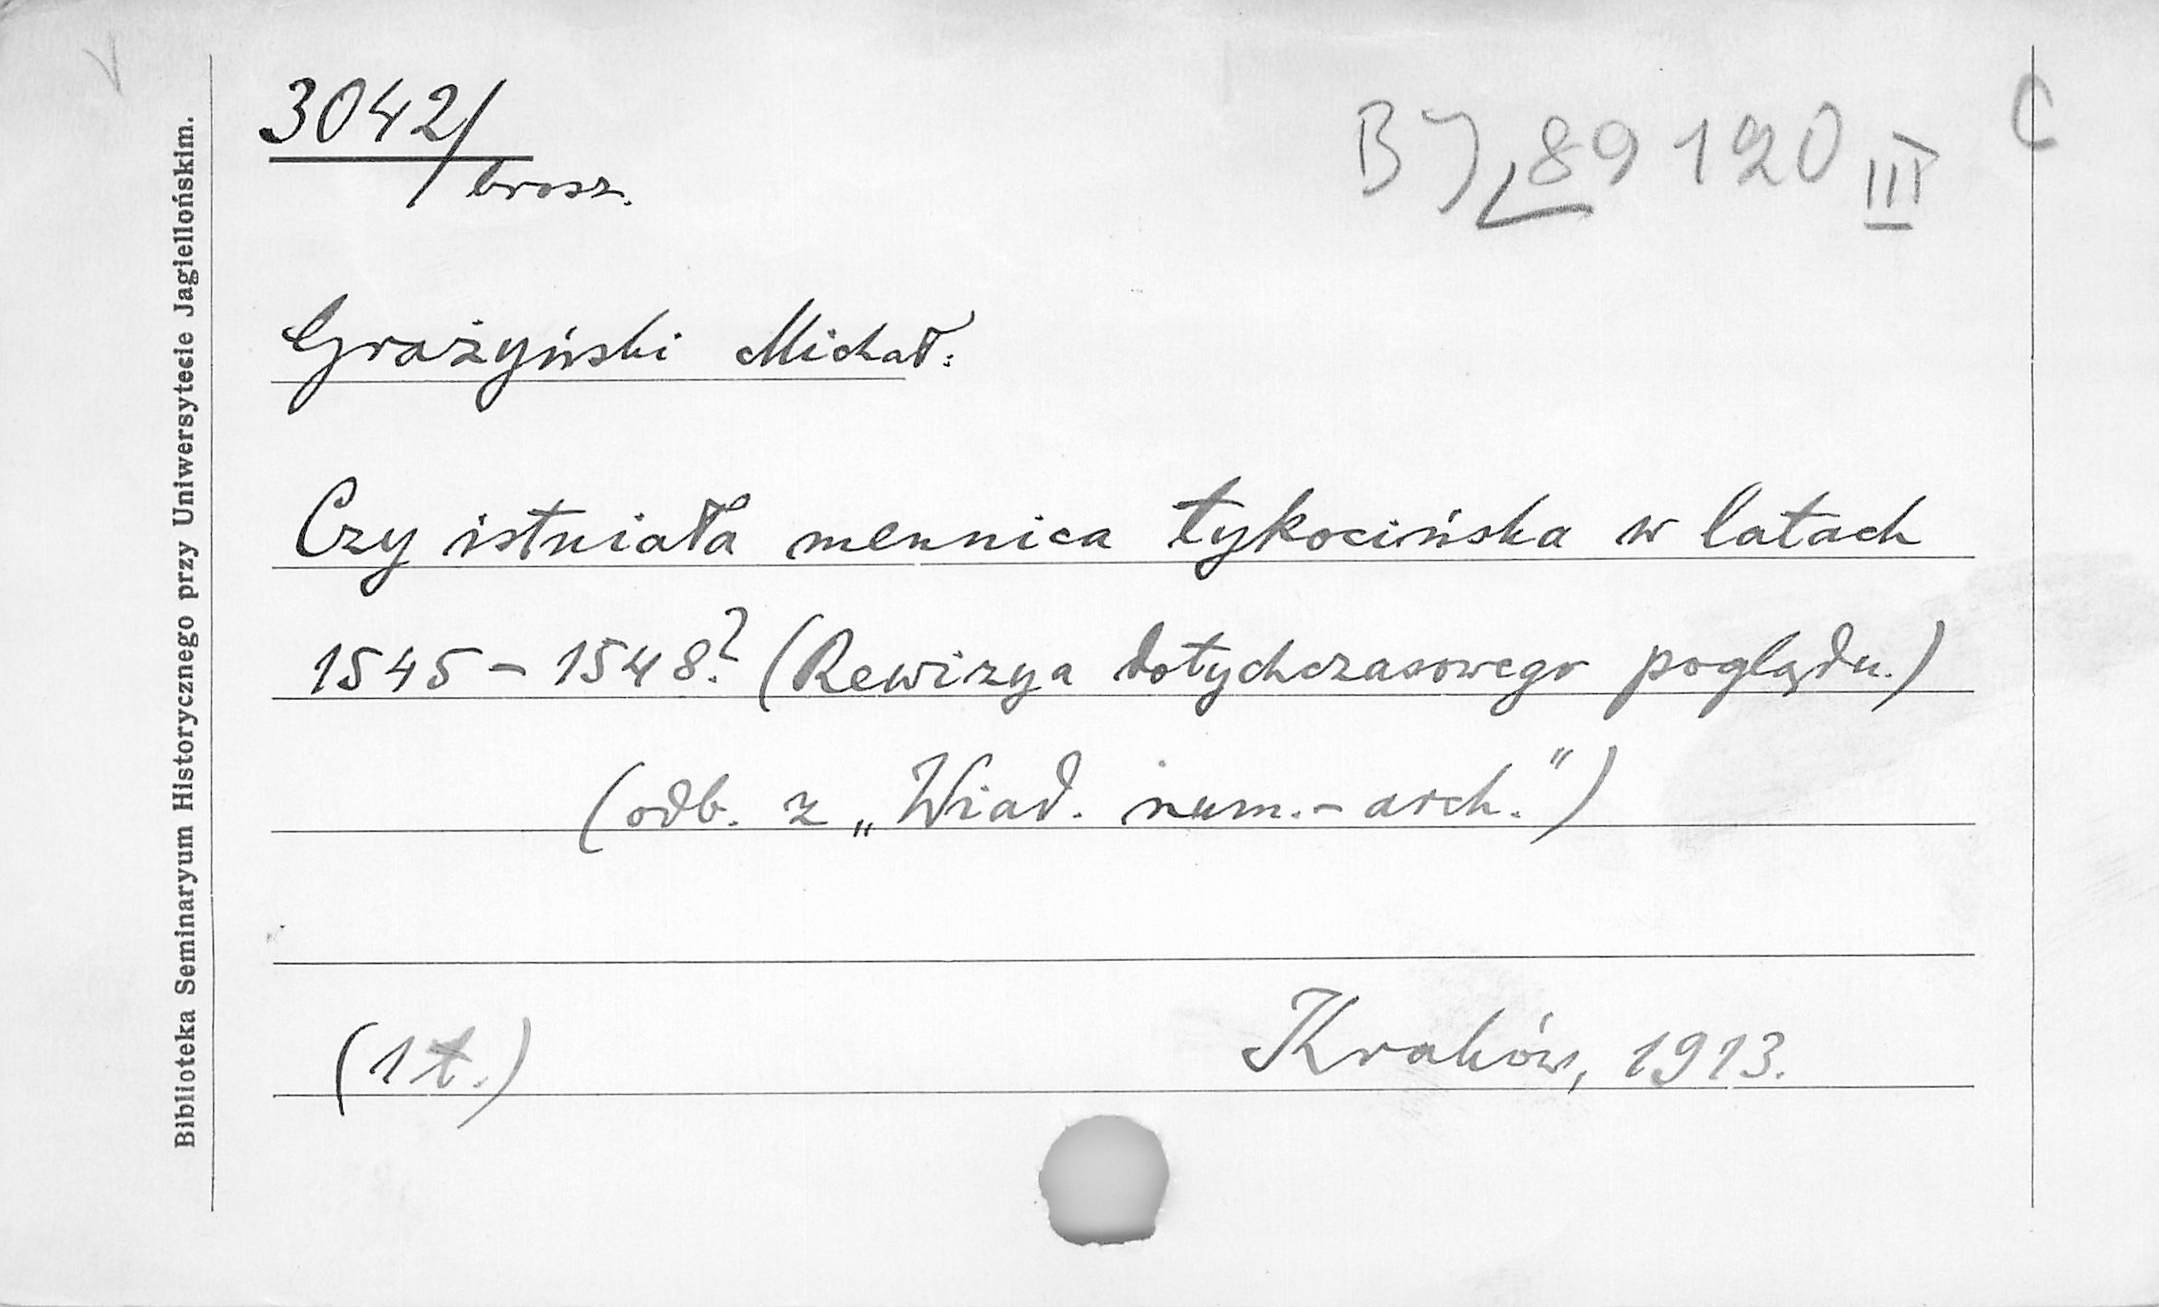 3042/brosz.
BJ 89120 III
C
Grażyński Michał:
Czy istniała mennica tykocińska w latach
1545-1548? (Rewizya dotychczasowego poglądu.)
(odb. z „Wiad. num.-arch.")
(1 t.)
Kraków, 1913.
Biblioteka Seminaryum Historycznego przy Uniwersytecie Jagiellońskim.